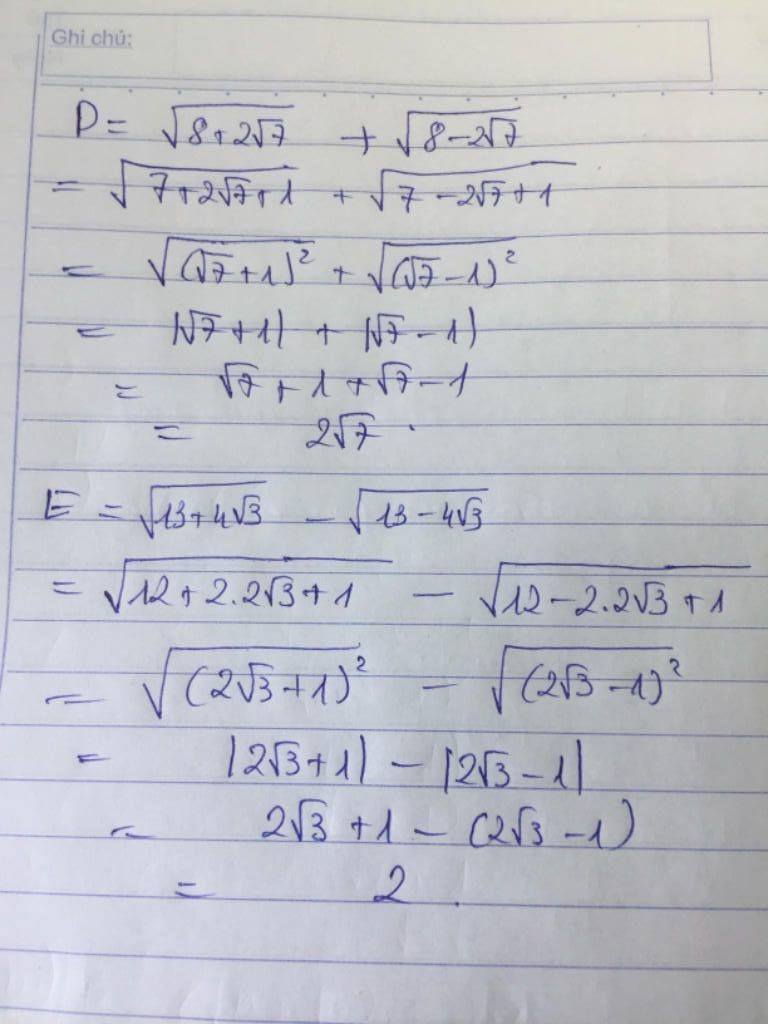 Ghi chú:
D = √(8+2√7) + √(8-2√7)
= √(7+2√7+1) + √(7-2√7+1)
= √((√7+1)²) + √((√7-1)²)
= |√7+1| + |√7-1|
= √7+1+√7-1
= 2√7.
E = √(13+4√3) - √(13-4√3)
= √(12+2.2√3+1) - √(12-2.2√3+1)
= √((2√3+1)²) - √((2√3-1)²)
= |2√3+1| - |2√3-1|
= 2√3+1-(2√3-1)
= 2.